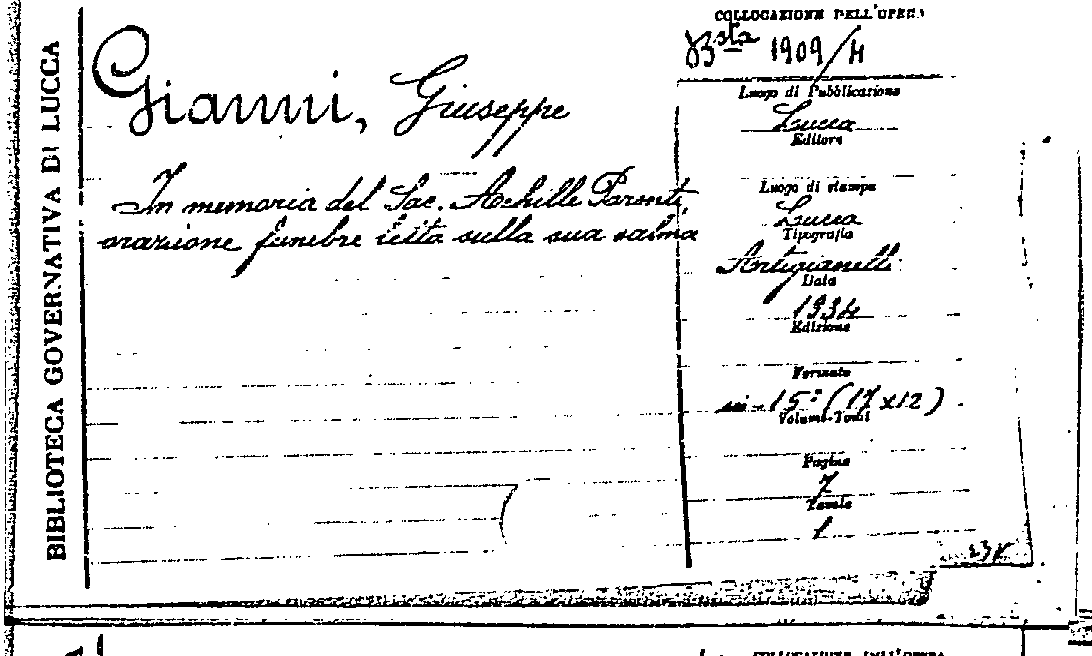 BIBLIOTECA GOVERNATIVA DI LUCCA
Gianni, Giuseppe
In memoria del Sac. Achille Parenti,
orazione funebre letta sulla sua salma
COLLOCAZIONE DELL'OPERA
Bsta 1909/4
Luogo di Pubblicazione
Lucca
Editore
Luogo di stampa
Lucca
Tipografia
Artigianelli
Data
1934
Edizione
Formato
in-15° (17x12)
Volumi-Tomi
Pagine
7
Tavole
1
COLLOCAZIONE DELL'OPERA